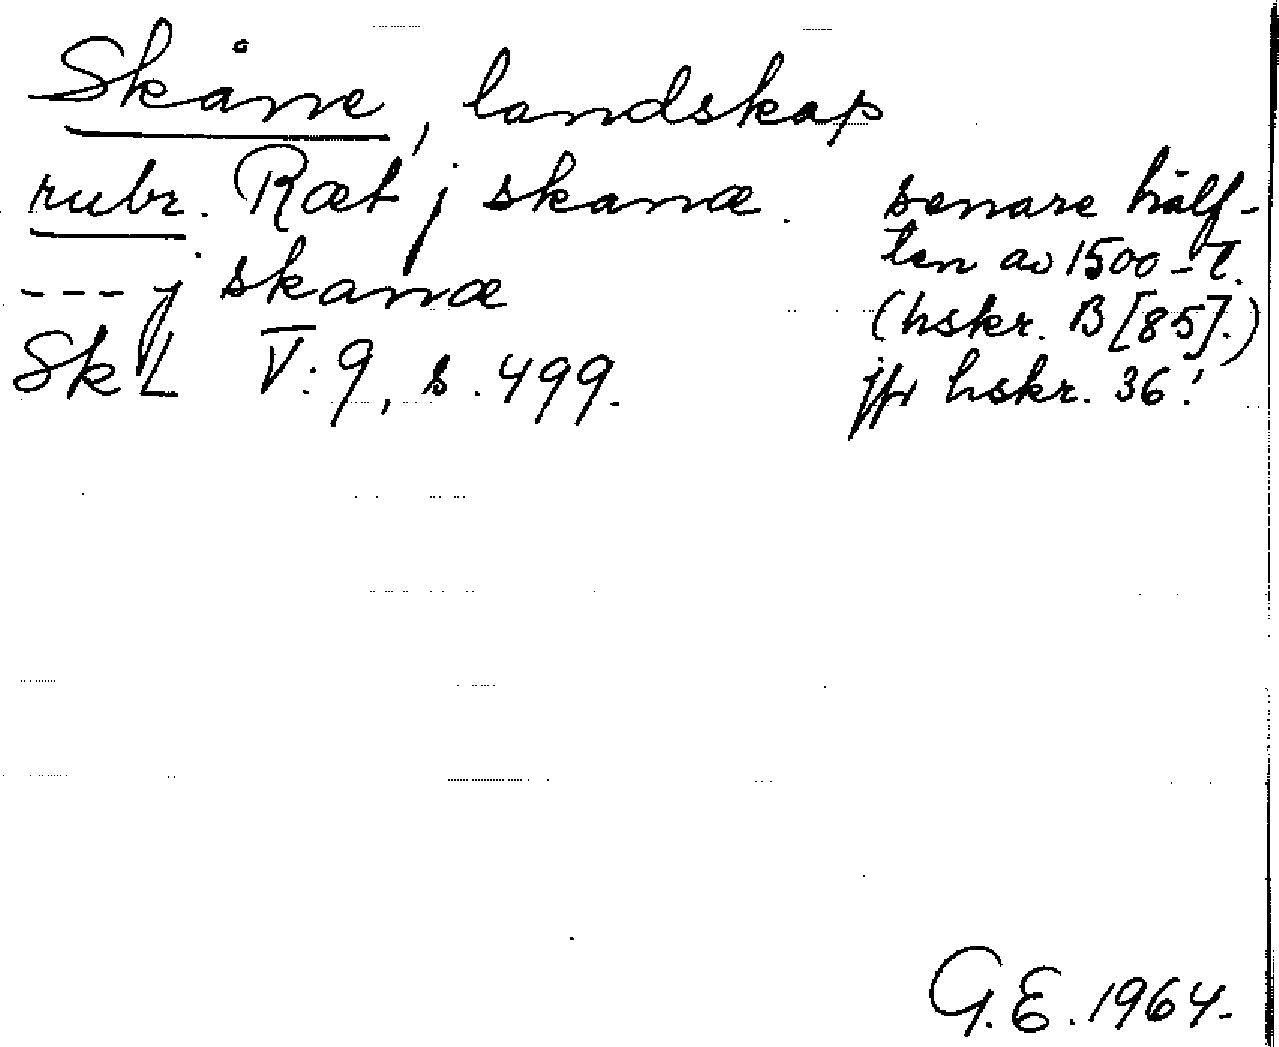 Skåne, landskap
rubr. Ræt j skanæ.
--- j skanæ
SkL V:9, s. 499.
senare hälf-
ten av 1500-t.
(hskr. B [85].)
jfr hskr. 36!
G.E. 1964.